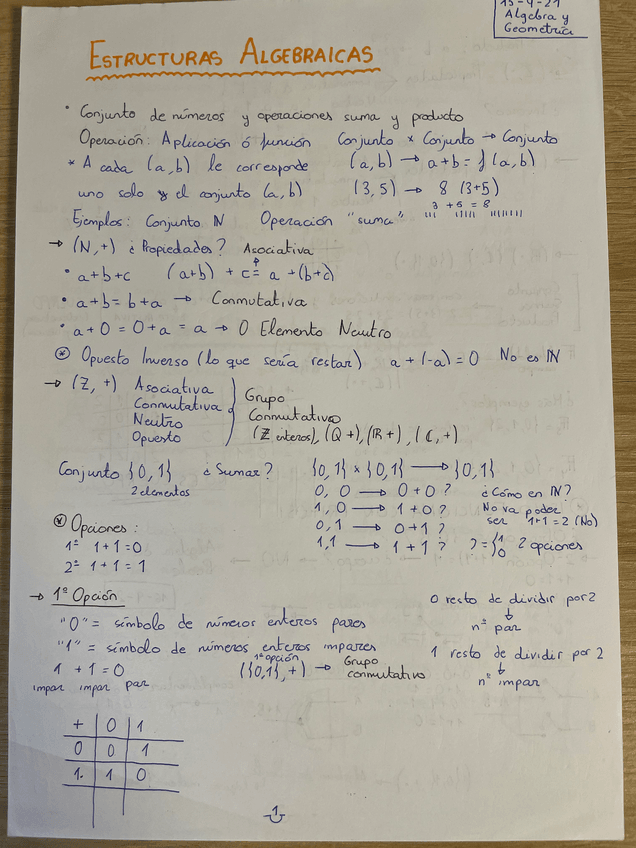 15-9-21
Algebra y
Geometría
ESTRUCTURAS ALGEBRAICAS
• Conjunto de números y operaciones suma y producto
Operación: Aplicación ó función Conjunto × Conjunto → Conjunto
* A cada (a,b) le corresponde (a,b) → a+b = f(a,b)
uno solo y el conjunto (a,b) (3,5) → 8 (3+5)
3 + 5 = 8
Ejemplos: Conjunto ℕ Operación "suma" ||| ||||| ||||||||
→ (ℕ,+) ¿Propiedades? Asociativa
• a+b+c (a+b) + c = a + (b+c)
• a+b = b+a → Conmutativa
• a+0 = 0+a = a → 0 Elemento Neutro
⊛ Opuesto Inverso (lo que sería restar) a + (-a) = 0 No es ℕ
→ (ℤ,+) Asociativa
Conmutativa
Neutro
Opuesto
Grupo
Conmutativo
(ℤ enteros), (ℚ +), (ℝ +), (ℂ, +)
Conjunto {0,1} ¿Sumar? {0,1} × {0,1} → {0,1}
2 elementos
0, 0 → 0+0 ? ¿Cómo en ℕ?
1, 0 → 1+0 ? No va poder
0,1 → 0+1 ? ser 1+1=2 (No)
1,1 → 1+1 ? ?={0 1 2 opciones
⊛ Opciones:
1ª 1+1=0
2ª 1+1=1
→ 1ª Opción
"0" = símbolo de números enteros pares
"1" = símbolo de números enteros impares
1 + 1 = 0
impar impar par
1ª opción
({0,1},+) → Grupo
conmutativo
0 resto de dividir por 2
↓
nº par
1 resto de dividir por 2
↓
nº impar
+ 0 1
0 0 1
1 1 0
1